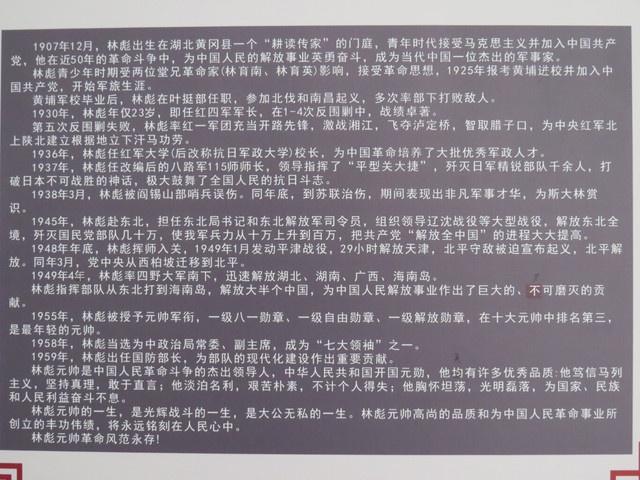 1907年12月，林彪出生在湖北黄冈县一个“耕读传家”的门庭，青年时代接受马克思主义并加入中国共产
党，他在近50年的革命斗争中，为中国人民的解放事业英勇奋斗，成为当代中国一位杰出的军事家。
林彪青少年时期受两位堂兄革命家(林育南、林育英)影响，接受革命思想，1925年报考黄埔进校并加入中
国共产党，开始军旅生涯。
黄埔军校毕业后，林彪在叶挺部任职，参加北伐和南昌起义，多次率部下打败敌人。
1930年，林彪年仅23岁，即任红四军军长，在1-4次反围剿中，战绩卓著。
第五次反围剿失败，林彪率红一军团充当开路先锋，激战湘江，飞夺泸定桥，智取腊子口，为中央红军北
上陕北建立根据地立下汗马功劳。
1936年，林彪任红军大学(后改称抗日军政大学)校长，为中国革命培养了大批优秀军政人才。
1937年，林彪任改编后的八路军115师师长，领导指挥了“平型关大捷”，歼灭日军精锐部队千余人，打
破日本不可战胜的神话，极大鼓舞了全国人民的抗日斗志。
1938年3月，林彪被阎锡山部哨兵误伤。同年底，到苏联治伤，期间表现出非凡军事才华，为斯大林赏
识。
1945年，林彪赴东北，担任东北局书记和东北解放军司令员，组织领导辽沈战役等大型战役，解放东北全
境，歼灭国民党部队几十万，使我军兵力从十万上升到百万，把共产党“解放全中国”的进程大大提高。
1948年年底，林彪挥师入关，1949年1月发动平津战役，29小时解放天津，北平守敌被迫宣布起义，北平解
放。同年3月，党中央从西柏坡迁移到北平。
1949年4年，林彪率四野大军南下，迅速解放湖北、湖南、广西、海南岛。
林彪指挥部队从东北打到海南岛，解放大半个中国，为中国人民解放事业作出了巨大的、不可磨灭的贡
献。
1955年，林彪被授予元帅军衔，一级八一勋章、一级自由勋章、一级解放勋章，在十大元帅中排名第三，
是最年轻的元帅。
1958年，林彪当选为中政治局常委、副主席，成为“七大领袖”之一。
1959年，林彪出任国防部长，为部队的现代化建设作出重要贡献。
林彪元帅是中国人民革命斗争的杰出领导人，中华人民共和国开国元勋，他均有许多优秀品质:他笃信马列
主义，坚持真理，敢于直言；他淡泊名利，艰苦朴素，不计个人得失；他胸怀坦荡，光明磊落，为国家、民族
和人民利益奋斗不息。
林彪元帅的一生，是光辉战斗的一生，是大公无私的一生。林彪元帅高尚的品质和为中国人民革命事业所
创立的丰功伟绩，将永远铭刻在人民心中。
林彪元帅革命风范永存!